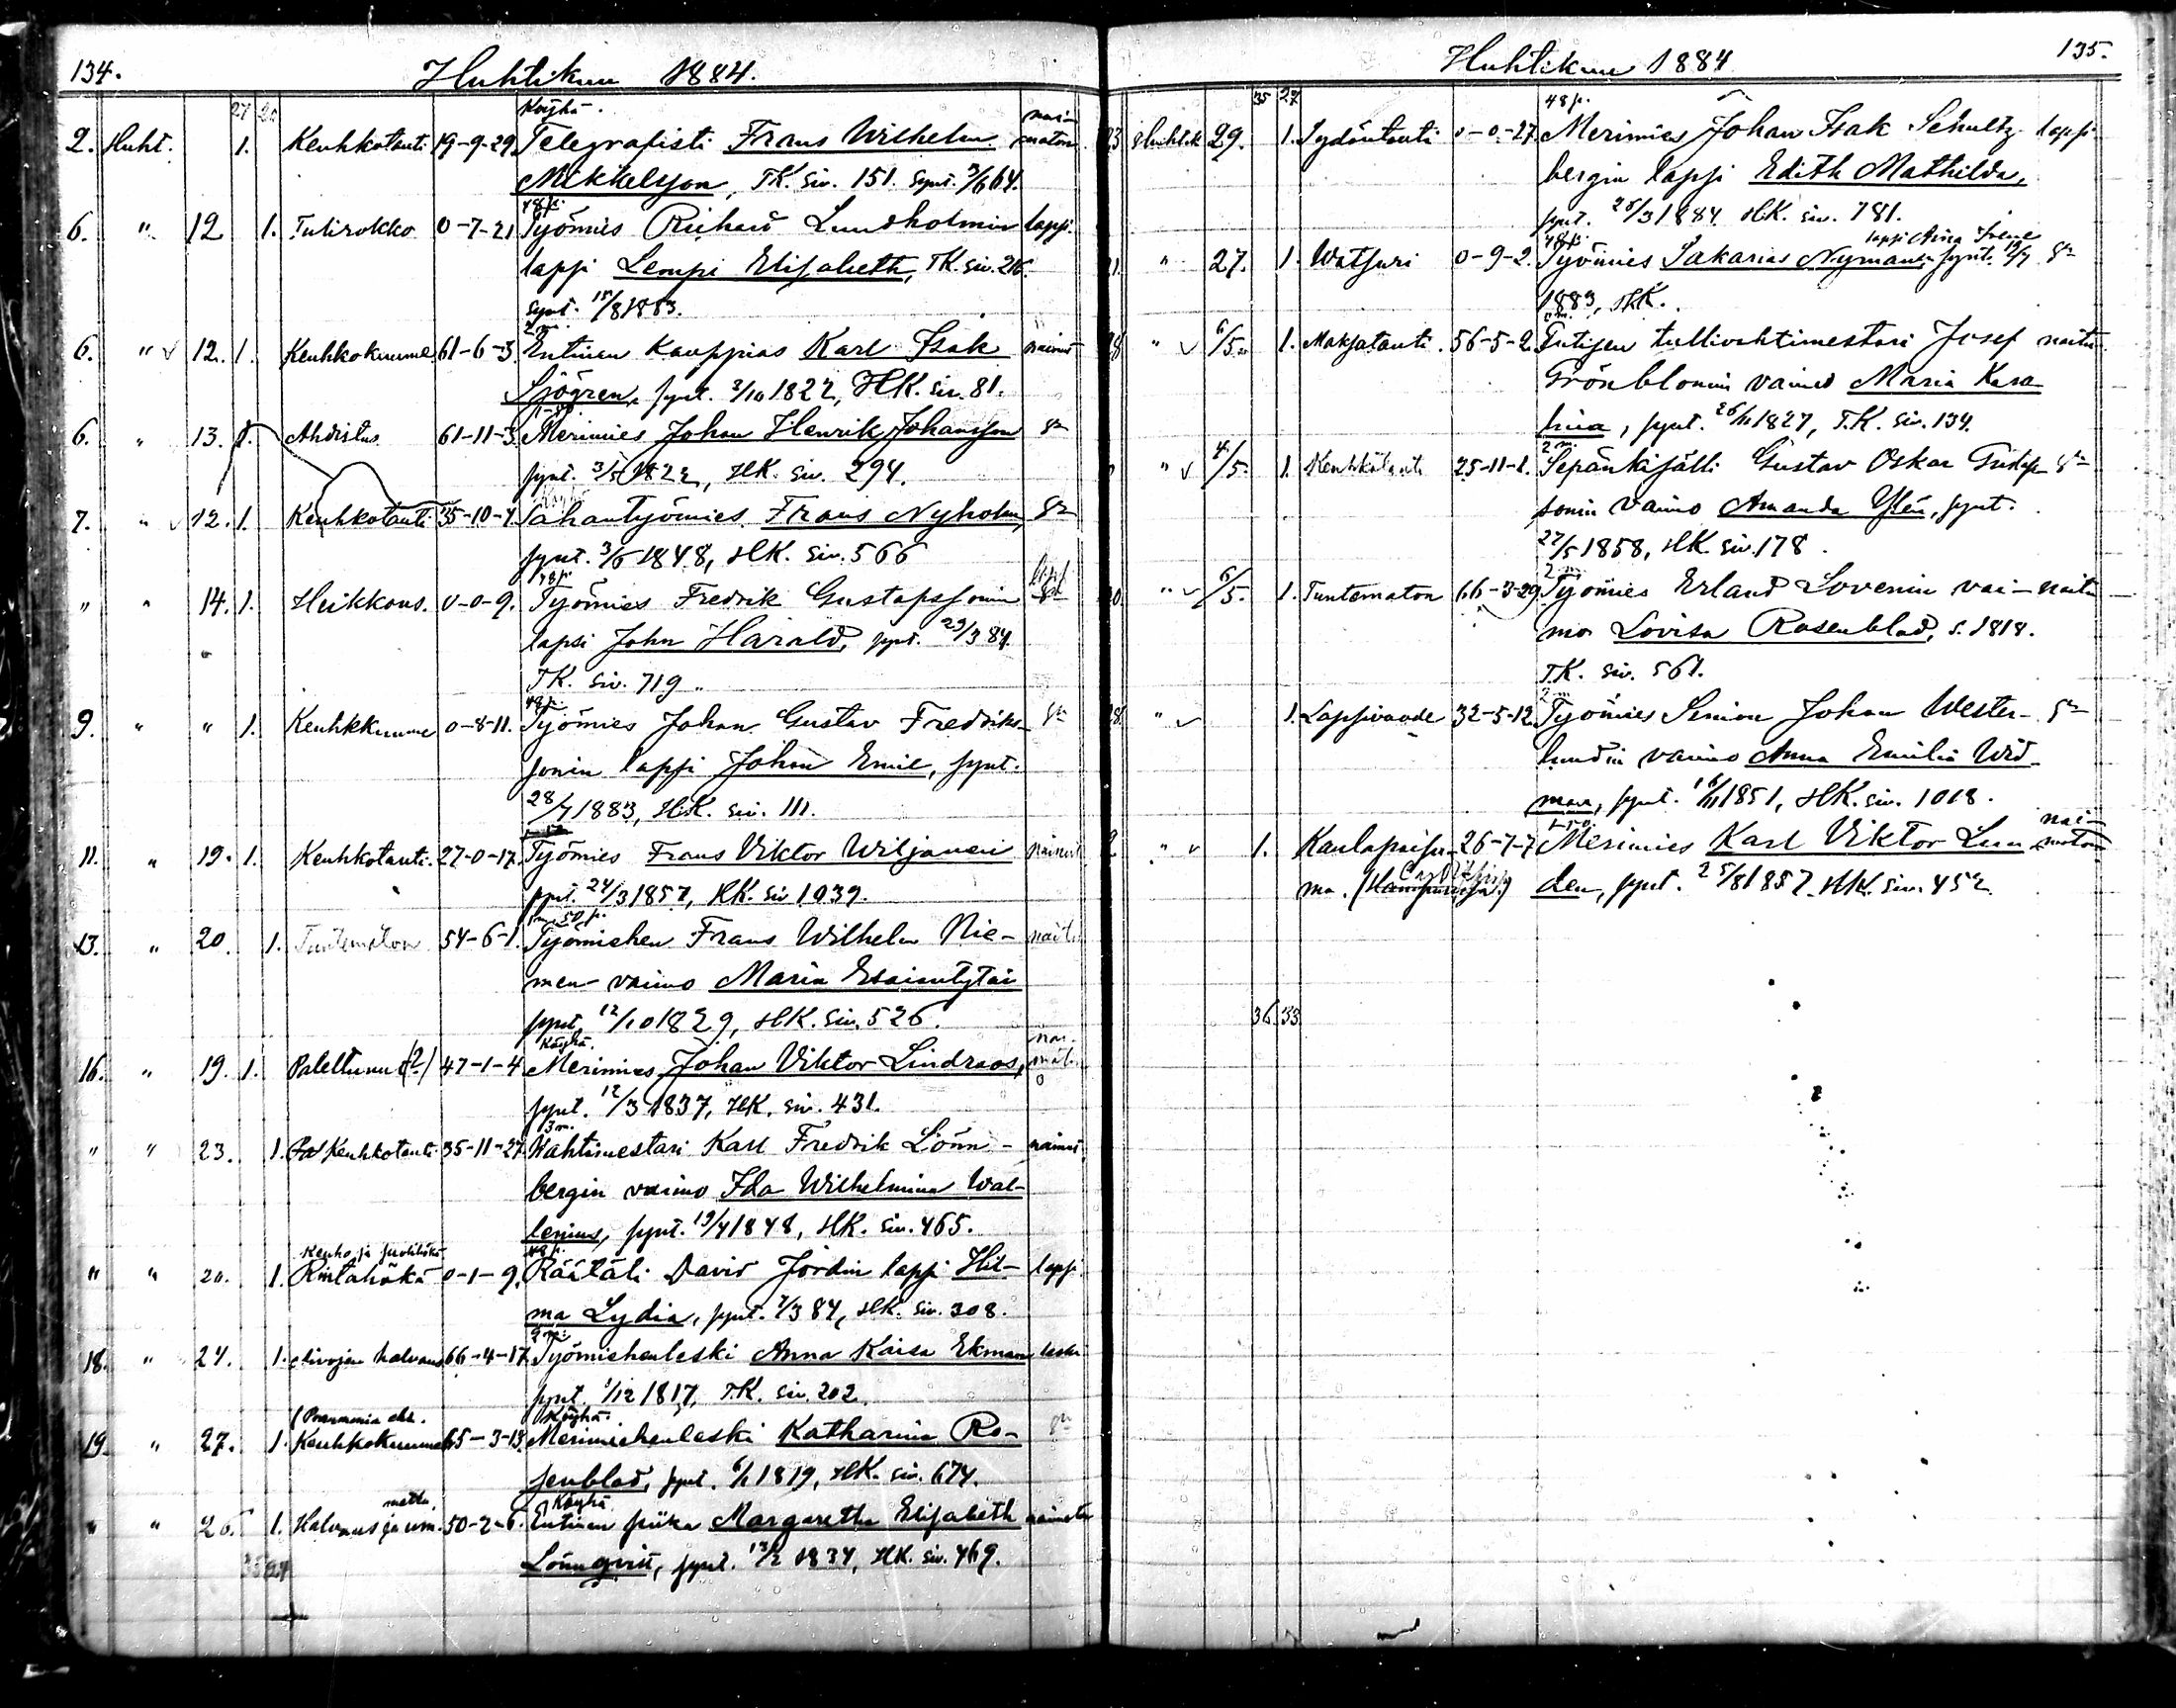 134.
Huhtikuu 1884.
27 20
Köyhä.
2. Huht. 1. Keuhkotauti 19-9-29 Telegrafisti Frans Wilhelm naimaton
Mikkelsson, TK. siv. 151. synt. 3/6 64.
48 p.
6. " 12 1. Tulirokko 0-7-21 Työmies Richard Lundholmin lapsi
lapsi Lempi Elisabeth, TK. siv. 216.
synt. 15/8 1883.
2 m.
6. " v 12. 1. Keuhkokuume 61-6-3. Entinen Kauppias Karl Isak nainut
Sjögren, synt. 3/10 1822, HK. siv. 81.
6. " 13. 1. Ahdistus 61-11-3 Merimies Johan Henrik Johansson sn
synt. 3/5 1822, HK. siv. 294.
Köyhä
7. " v 12. 1. Keuhkotauti 35-10-4 Sahantyömies Frans Nyholm, sn
synt. 3/6 1848, HK. siv. 566
48 p.
" " 14. 1. Heikkous. 0-0-9. Työmies Fredrik Gustafssonin lapsi
lapsi John Harald, synt. 29/3 84.
TK. siv. 719.
48 p.
9. " " 1. Keuhkkuume 0-8-11. Työmies Johan Gustav Fredriks- sn
sonin lapsi Johan Emil, synt.
28/7 1883, HK. siv. 111.
11. " 19. 1. Keuhkotauti. 27-0-17. Työmies Frans Viktor Wiljanen nainut
synt. 24/3 1857, HK. siv 1039.
1 m. 50 p.
13. " 20. 1. Tuntematon 54-6-1. Työmiehen Frans Wilhelm Nie- naitu
men vaimo Maria Esaiantytär
synt. 12/10 1829, HK. siv. 526.
Köyhä.
16. " 19. 1. Palettunut (?) 47-1-4 Merimies Johan Viktor Lindroos,
synt. 12/3 1837, HK. siv. 431.
3 m.
" " 23. 1. Keuhkotauti 35-11-27 Wahtimestari Karl Fredrik Lönn- nainut
bergin vaimo Ida Wilhelmina Wal-
lenius, synt. 19/4 1848, HK. siv. 465.
Keuho ja
48 p.
" " 20. 1. Rintahökä 0-1-9. Räätäli David Jordin lapsi Hil- lapsi
ma Lydia, synt. 7/3 84, HK. siv. 308.
2 m.
18. " 24. 1. Aivojen halvaus 66-4-17 Työmiehenleski Anna Kaisa Ekman leski
synt. 1/12 1817, TK. siv. 202.
Köyhä.
19. " 27. 1. Keuhkokuume 65-3-13 Merimiehenleski Katharina Ro- sn
senblad, synt. 6/1 1819, HK. siv. 674.
Köyhä
" " 26. 1. Halvaus ja um. 50-2-6. Entinen piika Margaretha Elisabeth naimaton
Lönnqvist, synt. 13/2 1834, HK. siv. 469.
Huhtikuu 1884
135.
35 27
48 p.
23 Huhtik 29. 1. Sydäntauti 0-0-27. Merimies Johan Isak Schultz- lapsi
bergin lapsi Edith Mathilda,
synt. 28/3 1884. HK. siv. 781.
48 p. lapsi Aina Irene
21. " 27. 1. Watsuri 0-9-2. Työmies Sakarias Nyman synt. 19/7 sn
1883, HK.
28 " v 6/5 1. Maksatauti 56-5-2 Entisen tullivahtimestari Josef naitu
Grönblomin vaimo Maria Kara-
lina, synt. 26/11 1827, T.K. siv. 134.
2 m.
" v 4/5. 1. Keuhkotauti 25-11-1. Sepänkisälli Gustav Oskar Gustaf- sn
sonin vaimo Amanda Ylén, synt.
27/5 1858, HK. siv. 178.
2 m
" v 6/5. 1. Tuntematon 66-3-29 Työmies Erland Lovenin vai- naitu
mo Lovisa Rosenblad, s. 1818.
T.K. siv. 561.
2 m
28. " v 1. Lapsivuode 32-5-12 Työmies Simon Johan Wester- sn
lundin vaimo Anna Emilia Wid-
man, synt. 16/11 1851, HK. siv. 1018.
" v 1. Kaulapaisu- 26-7-7 Merimies Karl Viktor Lin- naimaton
ma. den, synt. 25/8 1857. HK. siv. 452.
36 33